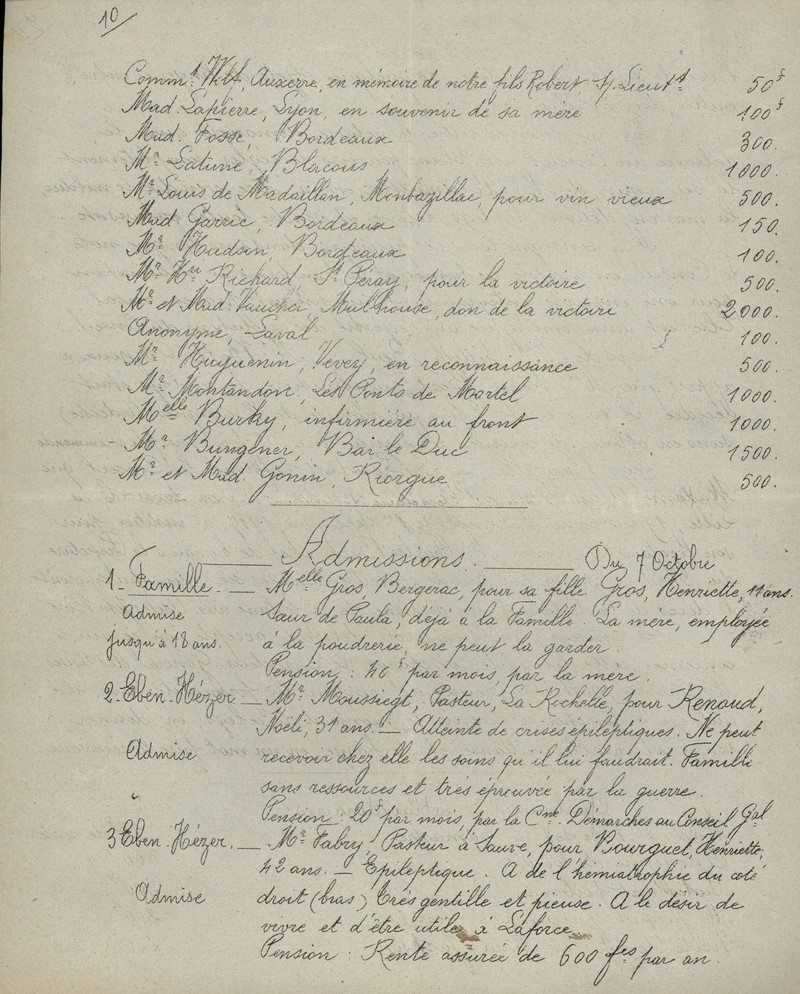 10
Comm.t Wilf, Auxerre, en mémoire de notre fils Robert, S/. Lieut.t 50f
Mad. Lapierre, Lyon, en souvenir de sa mère 100f
Mad. Fosse, Bordeaux 300.
Mr. Latune, Blacons 1000.
Mr. Louis de Madaillan, Monbazillac, pour vin vieux 500.
Mad. Garric, Bordeaux 150.
Mr. Hudson, Bordeaux 100.
Mr. Hri Richard, St Péray, pour la victoire 500.
Mr. et Mad. Vaucher, Mulhouse, don de la victoire 2000.
Anonyme, Laval 100.
Mr. Huguenin, Vevey, en reconnaissance 500.
Mr. Montandon, Les Ponts de Martel 1000.
Melle Burky, infirmière au front 1000.
- Mr. Bungener, Bar le Duc 1500.
Mr. et Mad. Gonin, Riorgue 500.
Admissions. Du 7 Octobre
1_ Famille. _ Melle Gros, Bergerac, pour sa fille Gros, Henriette, 11 ans.
Admise Sœur de Paula, déjà à la Famille. La mère, employée
jusqu'à 18 ans. à la poudrerie, ne peut la garder.
Pension : 40f par mois, par la mère.
2_ Eben-Hézer _ Mr. Moussiegt, Pasteur, La Rochelle, pour Renaud,
Noëli, 31 ans. _ Atteinte de crises épileptiques. Ne peut
Admise recevoir chez elle les soins qu'il lui faudrait. Famille
sans ressources et très éprouvée par la guerre.
Pension : 20f par mois, par la Cne. Démarches au Conseil Gal
3 Eben-Hézer. _ Mr. Fabry, Pasteur à Sauve, pour Bourguet, Henriette,
42 ans. _ Epileptique. A de l'hémiatrophie du coté
Admise droit (bras) très gentille et pieuse. A le désir de
vivre et d'être utile à Laforce.
Pension : Rente assurée de 600 fcs par an.